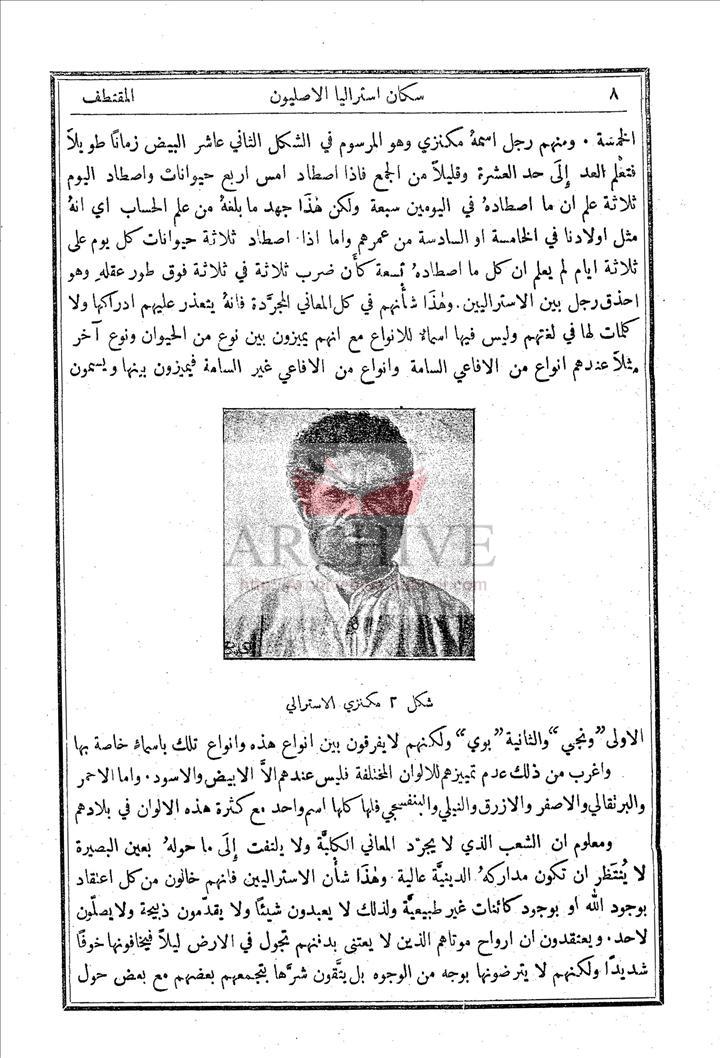 ٨ سكان استراليا الاصليون المقتطف
الخمسة . ومنهم رجل اسمهُ مكنزي وهو المرسوم في الشكل الثاني عاشر البيض زمانًا طويلاً
فتعلم العد إِلَى حد العشرة وقليلاً من الجمع فاذا اصطاد امس اربع حيوانات واصطاد اليوم
ثلاثة علم ان ما اصطادهُ في اليومين سبعة ولكن هٰذَا جهد ما بلغهُ من علم الحساب اي انهُ
مثل اولادنا في الخامسة او السادسة من عمرهم واما اذا اصطاد ثلاثة حيوانات كل يوم على
ثلاثة ايام لم يعلم ان كل ما اصطادهُ تسعة كأَن ضرب ثلاثة في ثلاثة فوق طور عقله وهو
احذق رجل بين الاستراليين . وهٰذَا شأْنهم في كل المعاني المجرَّدة فانهُ يتعذر عليهم ادراكها ولا
كلمات لها في لغتهم وليس فيها اسماءٌ للانواع مع انهم يميزون بين نوع من الحيوان ونوع آخر
مثلاً عندهم انواع من الافاعي السامة وانواع من الافاعي غير السامة فيميزون بينها ويسمون
ARCHIVE
شكل ٢ مكنزي الاسترالي
الاولى "ونجي" والثانية "بوي" ولكنهم لا يفرقون بين انواع هذه وانواع تلك باسماءٍ خاصة بها
واغرب من ذلك عدم تمييزهم للالوان المختلفة فليس عندهم الاَّ الابيض والاسود . واما الاحمر
والبرتقالي والاصفر والازرق والنيلي والبنفسجي فلها كلها اسم واحد مع كثرة هذه الالوان في بلادهم
ومعلوم ان الشعب الذي لا يجرّد المعاني الكليَّة ولا يلتفت إِلَى ما حولهُ بعين البصيرة
لا يُنتَظر ان تكون مداركهُ الدينيَّة عالية . وهٰذَا شأْن الاستراليين فانهم خالون من كل اعتقاد
بوجود الله او بوجود كائنات غير طبيعيَّة ولذلك لا يعبدون شيئًا ولا يقدّمون ذبيحة ولا يصلّون
لاحد . ويعتقدون ان ارواح موتاهم الذين لا يعتنى بدفنهم تجول في الارض ليلاً فيخافونها خوفًا
شديدًا ولكنهم لا يترضونها بوجه من الوجوه بل يتَّقون شرَّها بتجمعهم بعضهم مع بعض حول